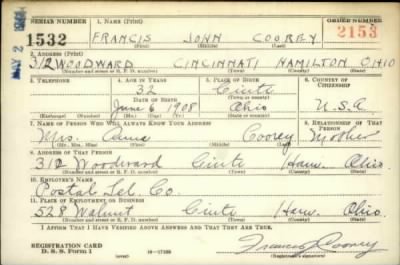 SERIAL NUMBER 1. NAME (Print) ORDER NUMBER
1532 FRANCIS JOHN COOREY 2153
(First) (Middle) (Last)
2. ADDRESS (Print)
312 WOODWARD CINCINNATI HAMILTON OHIO
(Number and street or R. F. D. number) (Town) (County) (State)
3. TELEPHONE 4. AGE IN YEARS 5. PLACE OF BIRTH 6. COUNTRY OF CITIZENSHIP
32 Cinti
DATE OF BIRTH (Town or county)
June 6 1908 Ohio U.S.A.
(Exchange) (Number) (Mo.) (Day) (Yr.) (State or country)
7. NAME OF PERSON WHO WILL ALWAYS KNOW YOUR ADDRESS 8. RELATIONSHIP OF THAT PERSON
Mrs. Anna Coorey Mother
(Mr., Mrs., Miss) (First) (Middle) (Last)
9. ADDRESS OF THAT PERSON
312 Woodward Cinti Ham. Ohio.
(Number and street or R. F. D. number) (Town) (County) (State)
10. EMPLOYER'S NAME
Postal Tel. Co.
11. PLACE OF EMPLOYMENT OR BUSINESS
528 Walnut Cinti Ham. Ohio.
(Number and street or R. F. D. number) (Town) (County) (State)
I AFFIRM THAT I HAVE VERIFIED ABOVE ANSWERS AND THAT THEY ARE TRUE.
REGISTRATION CARD
D. S. S. Form 1 (over) Francis Coorey
(Registrant's signature)